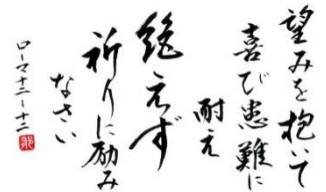 望みを抱いて
喜び患難に
耐え
絶えず
祈りに励み
なさい
ローマ十二ー十二